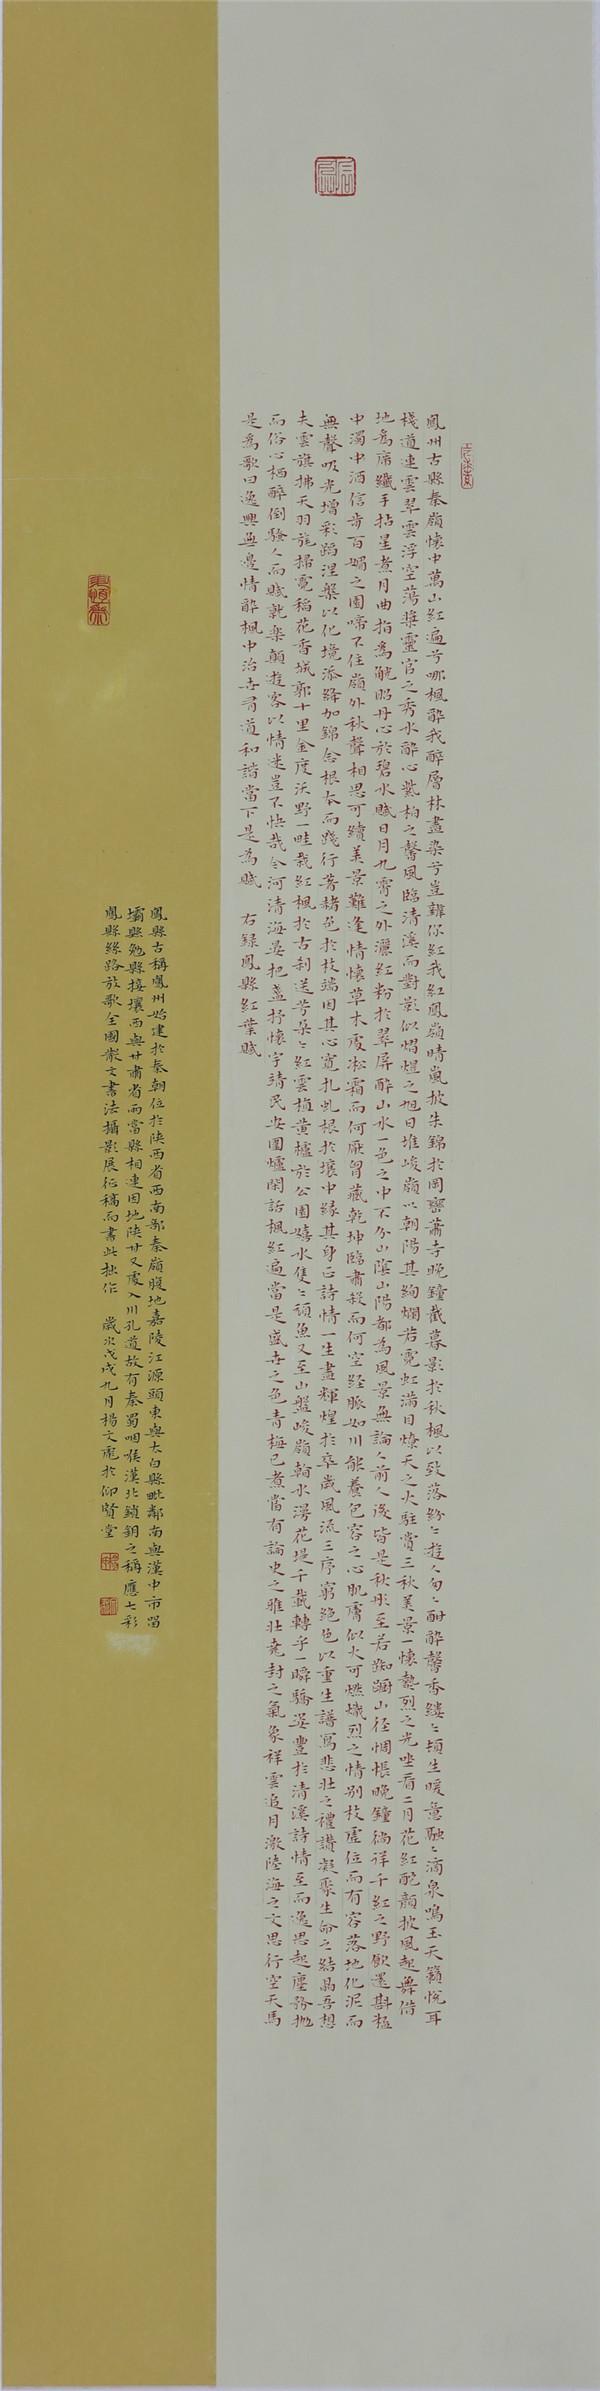 鳳州古縣秦嶺懷中萬山紅遍兮哪楓醉我醉層林盡染兮豈韓你紅我紅鳳嶺晴嵐披朱錦於岡巒蕭寺晚鐘截暮影於秋楓以致落紛〻遊人匆〻酣醉馨香縷〻頓生暖意融〻滴泉鳴玉天籟悅耳
棧道連雲翠雲浮空蕩槳靈官之秀水醉心紫柏之馨風臨清溪而對影似熠燿之旭日堆峻嶺以朝陽其絢爛若霓虹滿目燎天之火駐賞三秋美景一懷熱烈之光坐看二月花紅酡顏披風起舞借
地為席纖手拈星煮月曲指為觥照丹心於碧水賦日月九霄之外灑紅粉於翠屏醉山水一色之中不分山陰山陽都為風景無論人前人後皆是秋彤至若踟躕山徑惆悵晚鐘徜徉千紅之野飲還斟猛
中濁中酒信步百媚之園啼不住嶺外秋聲相思可續美景難逢情懷草木處凇霜而何厭胃藏乾坤臨肅殺而何空經脈如川能養包容之心肌膚似火可燃熾烈之情別枝虛位而有容落地化泥而
無聲吸光增彩蹈涅槃以化境添絳加錦念根本而踐行著赭色於枝端因其心寬扎虬根於壤中緣其身正詩情一生盡輝煌於卒歲風流三序窮絕色以重生譜寫悲壯之禮讚凝聚生命之結晶吾想
夫雲旗拂天羽旄掃霓稻花香城郭十里金度沃野一畦栽紅楓於古剎送芳朵〻紅雲植黃櫨於公園嬉水隻〻頑魚又至山盤峻嶺翰水湧花堤千載轉乎一瞬驕姿豐於清溪詩情至而逸思起塵務拋
而俗心栖醉倒騷人而賦乾樂顛遊客以情迷豈不快哉今河清海晏把盞抒懷宇靖民安圍爐閑話楓紅遍當是盛世之色青梅已煮當有論史之雅壯堯封之氣象祥雲追月澈陸海之文思行空天馬
是為歌曰逸興無邊情醉楓中治世尋道和諧當下是為賦　右錄鳳縣紅葉賦
鳳縣古稱鳳州始建於秦朝位於陝西省西南部秦嶺腹地嘉陵江源頭東與太白縣毗鄰南與漢中市留
壩縣勉縣接壤西與甘肅省兩當縣相連因地陝甘又處入川孔道故有秦蜀咽喉漢北鎖鑰之稱應七彩
鳳縣絲路放歌全國散文書法攝影展征稿而書此拙作　歲次戊戌九月楊文彪於仰賢堂